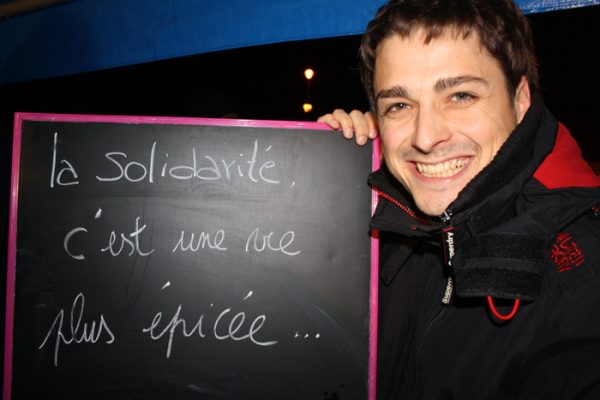 la solidarité,
c'est une vie
plus épicée...
Superdry